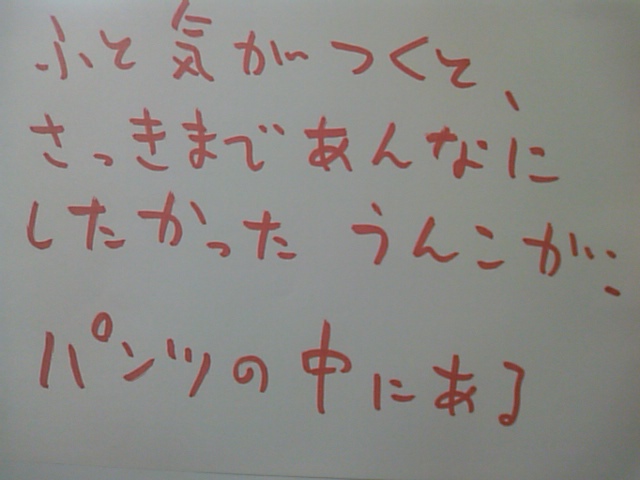 ふと気がつくと、
さっきまであんなに
したかったうんこが…
パンツの中にある